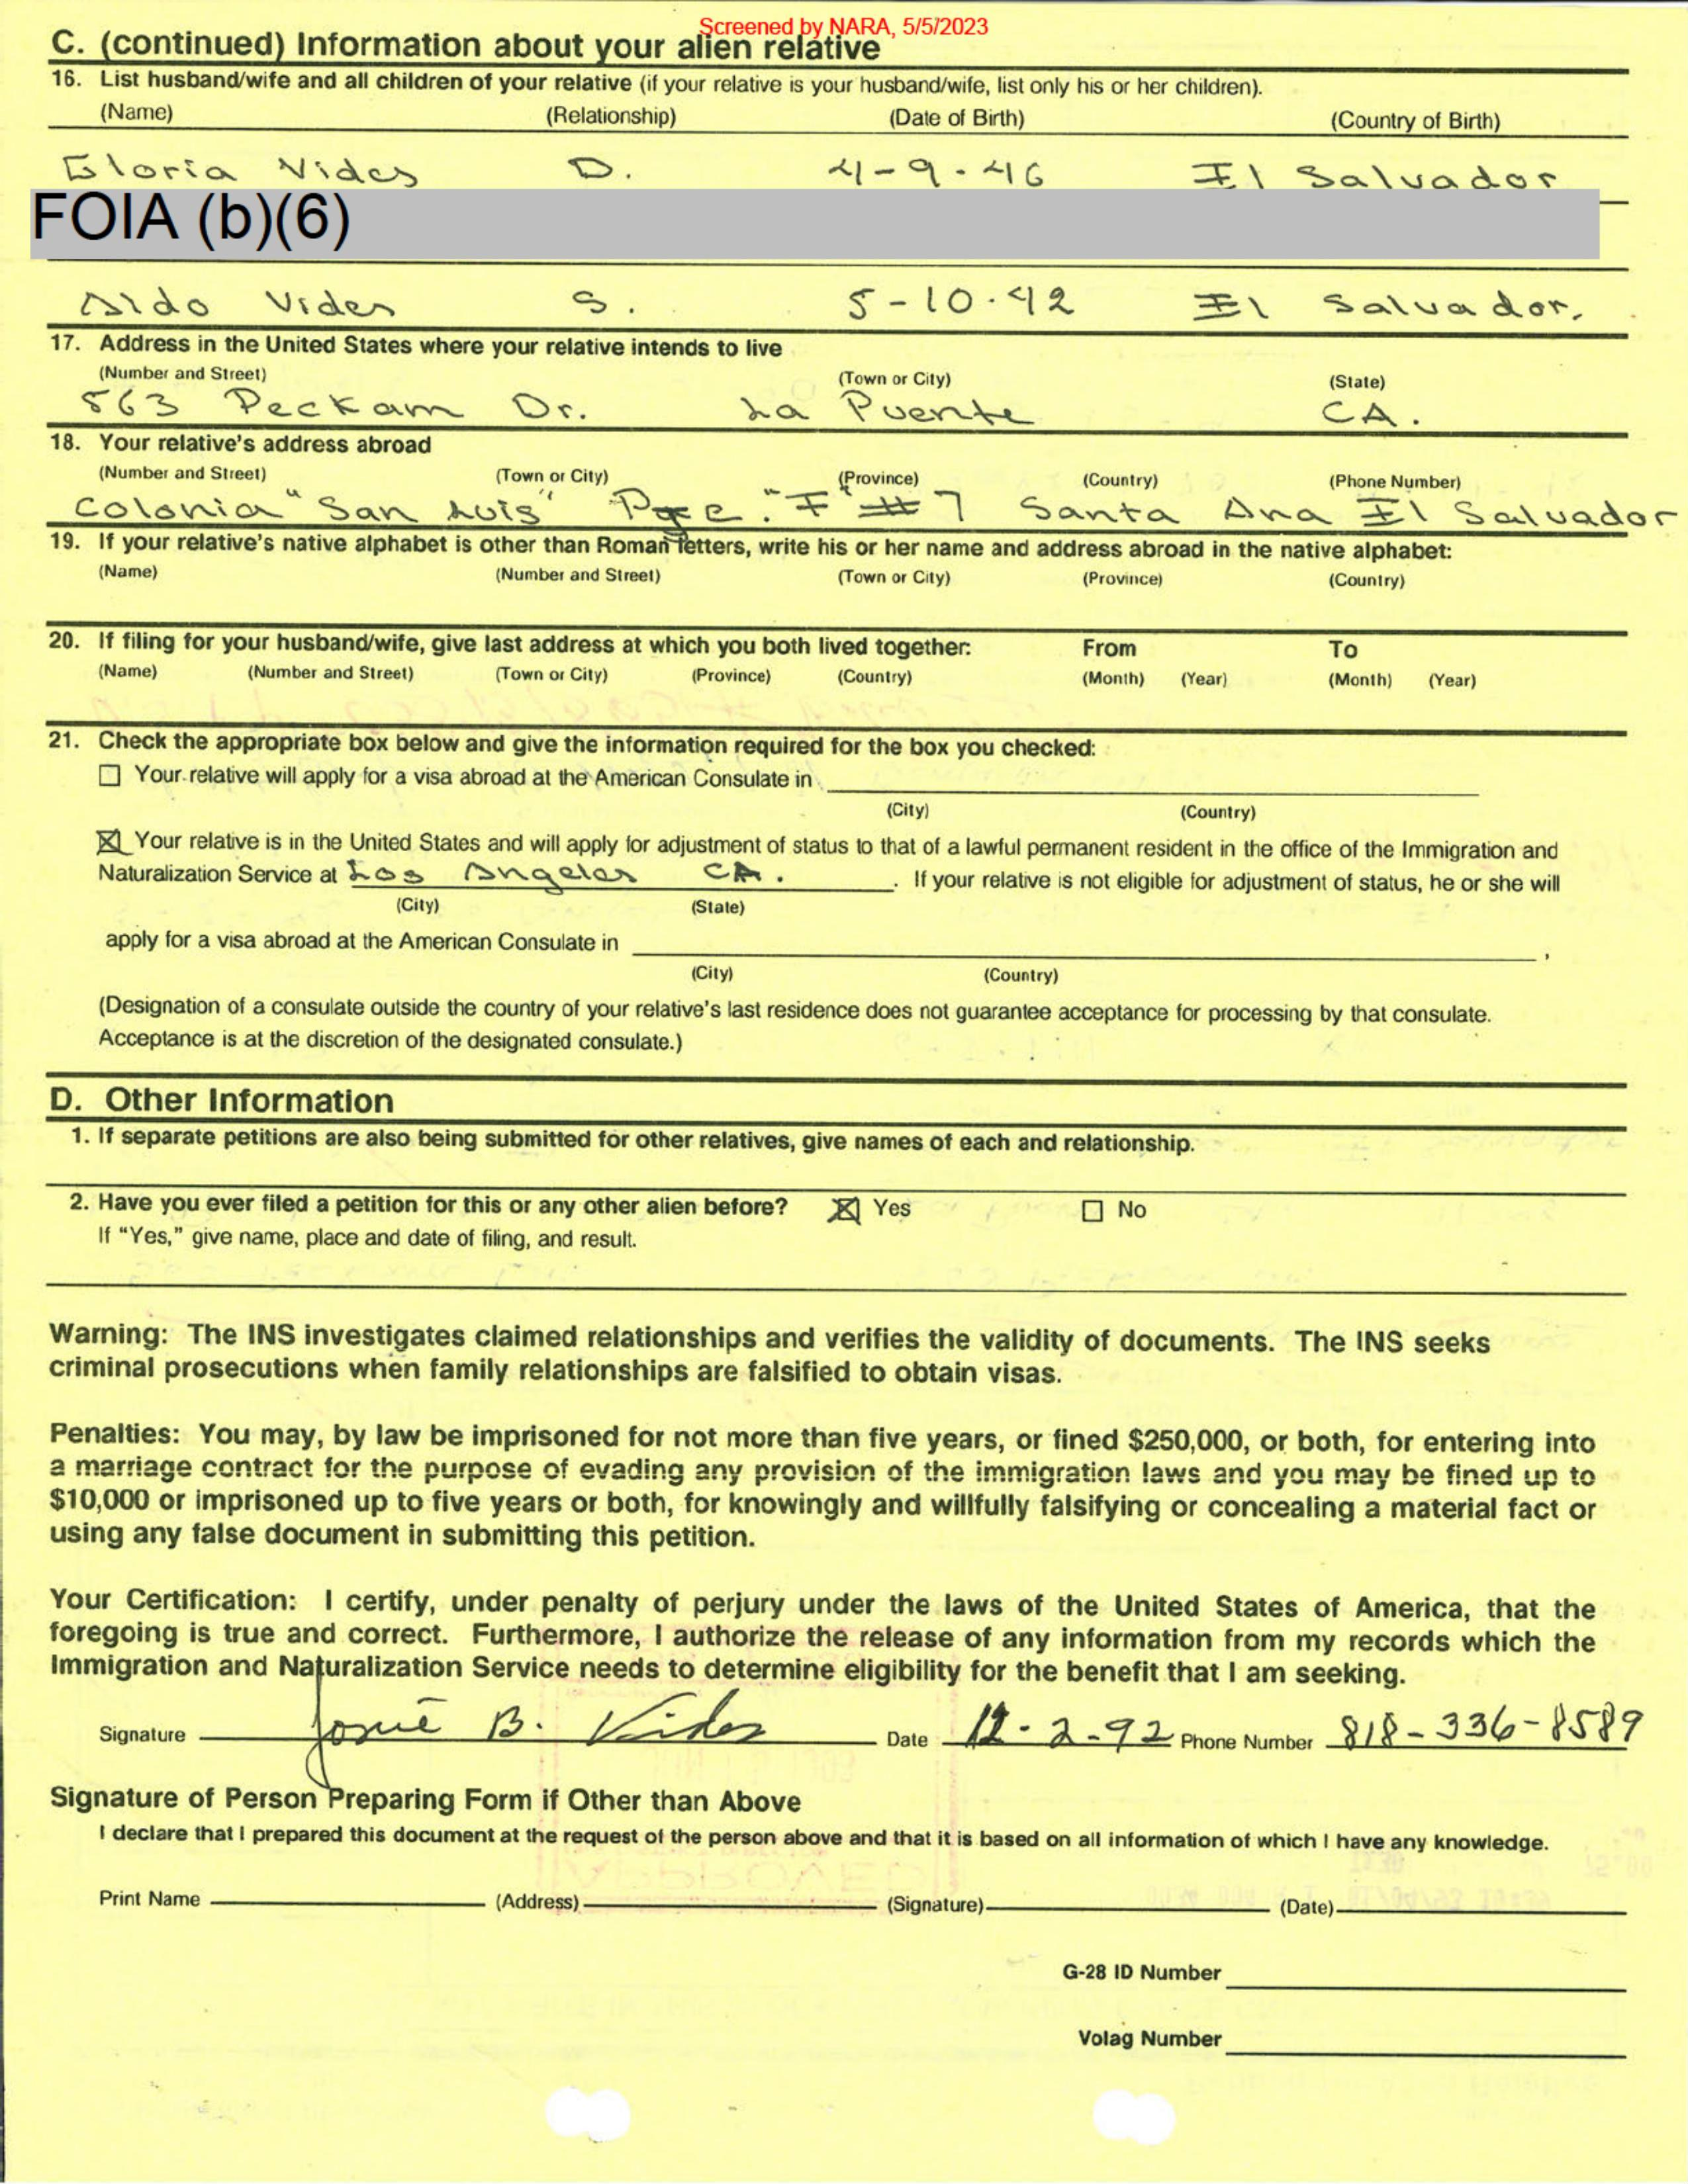 Screened by NARA, 5/5/2023
C. (continued) Information about your alien relative
16. List husband/wife and all children of your relative (if your relative is your husband/wife, list only his or her children).
(Name) (Relationship) (Date of Birth) (Country of Birth)
Gloria Vides D. 4-9-46 El Salvador
FOIA (b)(6)
Aldo Vides S. 5-10-42 El Salvador.
17. Address in the United States where your relative intends to live
(Number and Street) (Town or City) (State)
563 Peckam Dr. La Puente CA.
18. Your relative's address abroad
(Number and Street) (Town or City) (Province) (Country) (Phone Number)
Colonia "San Luis" "F" #7 Santa Ana El Salvador
19. If your relative's native alphabet is other than Roman letters, write his or her name and address abroad in the native alphabet:
(Name) (Number and Street) (Town or City) (Province) (Country)
20. If filing for your husband/wife, give last address at which you both lived together: From To
(Name) (Number and Street) (Town or City) (Province) (Country) (Month) (Year) (Month) (Year)
21. Check the appropriate box below and give the information required for the box you checked:
☐ Your relative will apply for a visa abroad at the American Consulate in
(City) (Country)
☒ Your relative is in the United States and will apply for adjustment of status to that of a lawful permanent resident in the office of the Immigration and
Naturalization Service at Los Angeles CA. . If your relative is not eligible for adjustment of status, he or she will
(City) (State)
apply for a visa abroad at the American Consulate in ,
(City) (Country)
(Designation of a consulate outside the country of your relative's last residence does not guarantee acceptance for processing by that consulate.
Acceptance is at the discretion of the designated consulate.)
D. Other Information
1. If separate petitions are also being submitted for other relatives, give names of each and relationship.
2. Have you ever filed a petition for this or any other alien before? ☒ Yes ☐ No
If "Yes," give name, place and date of filing, and result.
Warning: The INS investigates claimed relationships and verifies the validity of documents. The INS seeks
criminal prosecutions when family relationships are falsified to obtain visas.
Penalties: You may, by law be imprisoned for not more than five years, or fined $250,000, or both, for entering into
a marriage contract for the purpose of evading any provision of the immigration laws and you may be fined up to
$10,000 or imprisoned up to five years or both, for knowingly and willfully falsifying or concealing a material fact or
using any false document in submitting this petition.
Your Certification: I certify, under penalty of perjury under the laws of the United States of America, that the
foregoing is true and correct. Furthermore, I authorize the release of any information from my records which the
Immigration and Naturalization Service needs to determine eligibility for the benefit that I am seeking.
Signature Josué B. Vides Date 12-2-92 Phone Number 818-336-8589
Signature of Person Preparing Form if Other than Above
I declare that I prepared this document at the request of the person above and that it is based on all information of which I have any knowledge.
Print Name (Address) (Signature) (Date)
G-28 ID Number
Volag Number